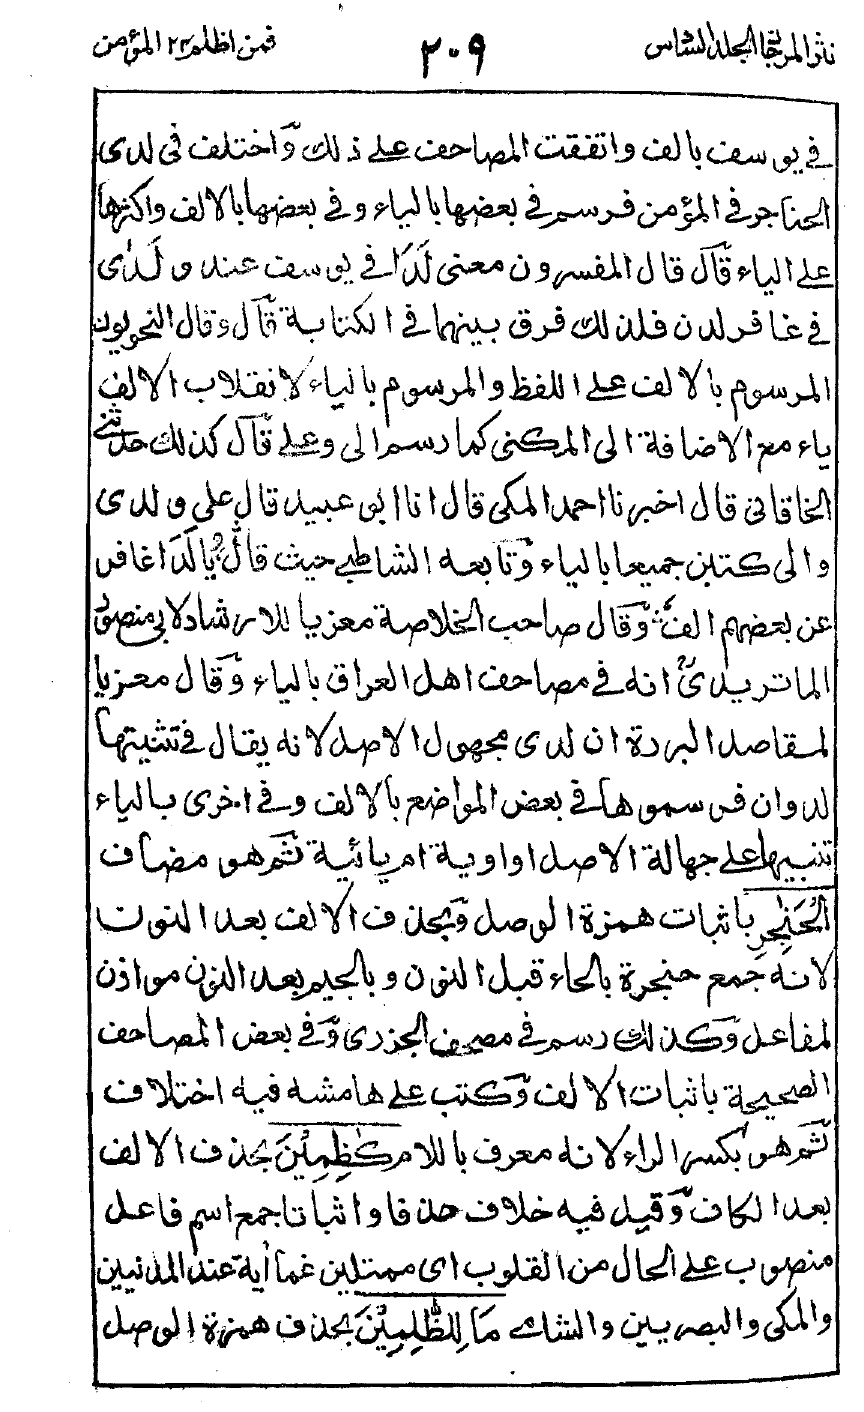 نثر المرجان الجلد السادس ٢٠٩ فمن اظلم ٢٤ المؤمن
في يوسف بالف واتفقت المصاحف على ذلك واختلف في لدى
الحناجر في المؤمن فرسم في بعضها بالياء وفي بعضها بالالف واكثرها
على الياء قال قال المفسرون معنى لَدَا في يوسف عند و لَدَى
في غافر لدن فلذلك فرق بينهما في الكتابة قال وقال النحويون
المرسوم بالالف على اللفظ والمرسوم بالياء لانقلاب الالف
ياء مع الاضافة الى المكنى كما رسم الى وعلى قال كذلك حدثنى
الخاقانى قال اخبرنا احمد المكى قال انا ابو عبيد قال على ولدى
والى كتبن جميعا بالياء وتابعه الشاطبي حيث قال لدا غافر
عن بعضهم الف وقال صاحب الخلاصة معزيا للارشاد لابى منصور
الماتريدى انه في مصاحف اهل العراق بالياء وقال معزيا
لمقاصد البردة ان لدى مجهول الاصل لانه يقال في تثنيتها
لدوان فرسموها في بعض المواضع بالالف وفى اخرى بالياء
تنبيها على جهالة الاصل اواوية ام يائية ثم هو مضاف
الْحَنٰجِرِ باثبات همزة الوصل وبحذف الالف بعد النون
لانه جمع حنجرة بالحاء قبل النون وبالجيم بعد النون موازن
لمفاعل وكذلك رسم في مصحف الجزرى وفي بعض المصاحف
الصحيحة باثبات الالف وكتب على هامشه فيه اختلاف
ثم هو بكسر الراء لانه معرف باللام كٰظِمِيْنَ بحذف الالف
بعد الكاف وقيل فيه خلاف حذفا واثباتا جمع اسم فاعل
منصوب على الحال من القلوب اى ممتلين غما اية عند المدنيين
والمكى والبصريين والشامي مَا لِلظّٰلِمِيْنَ بحذف همزة الوصل